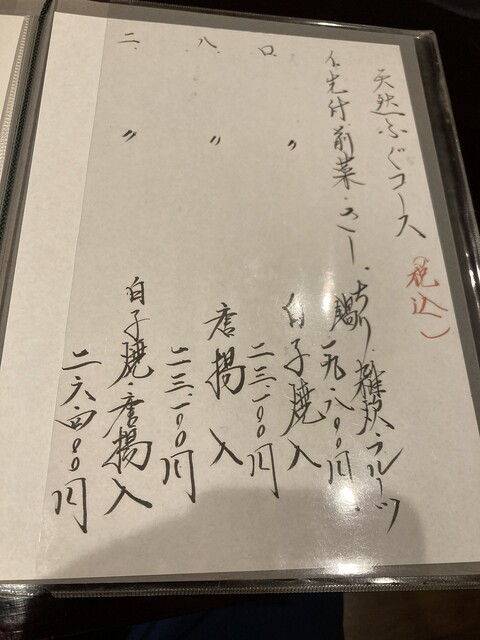 天然ふぐコース
(税込)
イ.先付.前菜.さし.ちり鍋.雑炊.フルーツ
一九.八〇〇円
ロ. 〃 白子焼入
二三.一〇〇円
ハ. 〃 唐揚入
二三.一〇〇円
ニ. 〃 白子焼.唐揚入
二六.四〇〇円